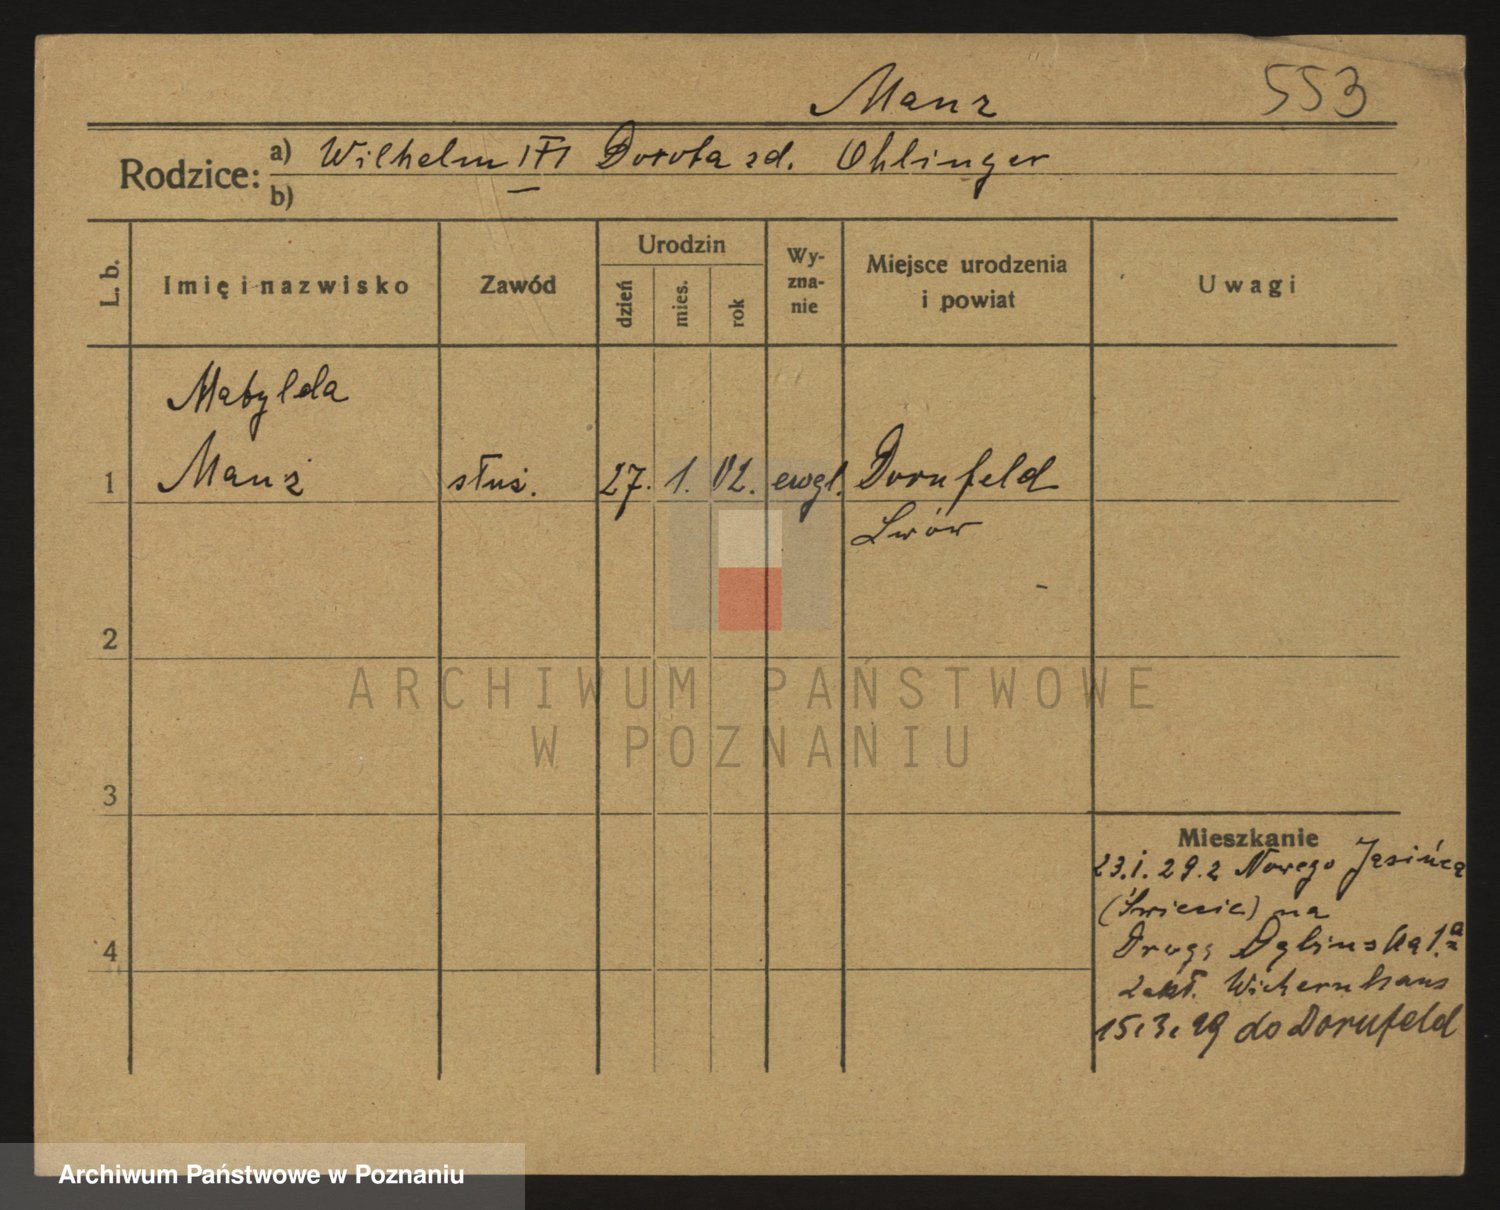 Manz
553
Rodzice:
a) Wilhelm i Dorota zd. Ohlinger
b)
L. b.
Imię i nazwisko
Zawód
Urodzin
dzień
mies.
rok
Wy-
zna-
nie
Miejsce urodzenia
i powiat
Uwagi
Matylda
1 Manz służ. 27. 1. 02. ewgl. Dornfeld
Lwów
2
3
4
Mieszkanie
23.1.29. z Nowego Jasińca
(Świecie) na
Drogę Dęblińską 1.a
zakł. Wichernhaus
15.3.29 do Dornfeld
ARCHIWUM PAŃSTWOWE
W POZNANIU
Archiwum Państwowe w Poznaniu